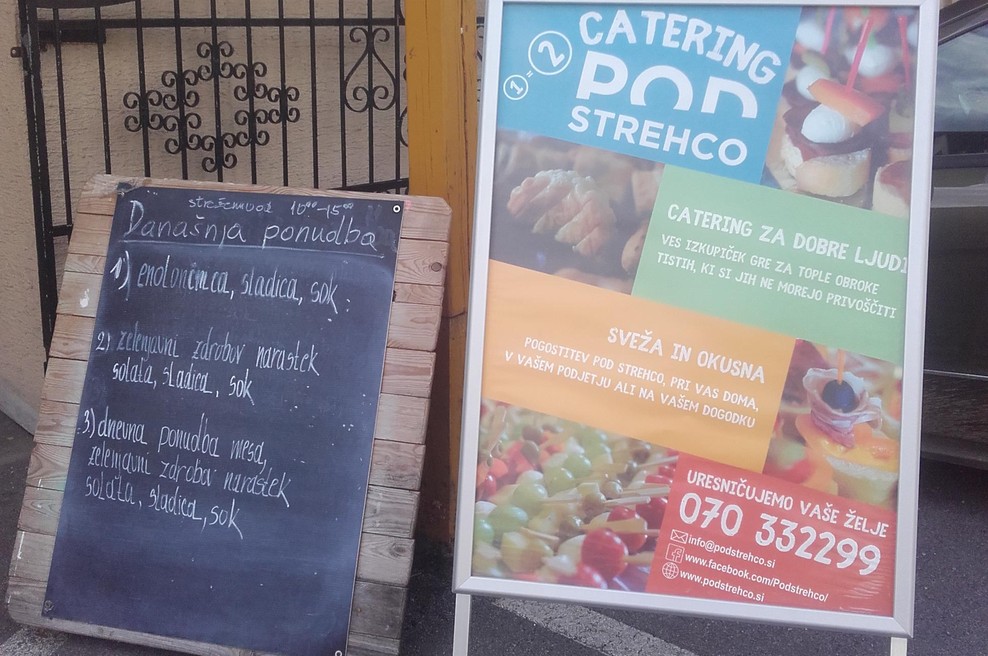 strežemo od 10⁰⁰-15⁰⁰
Današnja ponudba
1) enolončnica, sladica, sok
2) zelenjavni zdrobov narastek
solata, sladica, sok
3) dnevna ponudba mesa,
zelenjavni zdrobov narastek
solata, sladica, sok
1=2
CATERING
POD
STREHCO
CATERING ZA DOBRE LJUDI
VES IZKUPIČEK GRE ZA TOPLE OBROKE
TISTIH, KI SI JIH NE MOREJO PRIVOŠČITI
SVEŽA IN OKUSNA
POGOSTITEV POD STREHCO, PRI VAS DOMA,
V VAŠEM PODJETJU ALI NA VAŠEM DOGODKU
URESNIČUJEMO VAŠE ŽELJE
070 332299
info@podstrehco.si
www.facebook.com/Podstrehco/
www.podstrehco.si